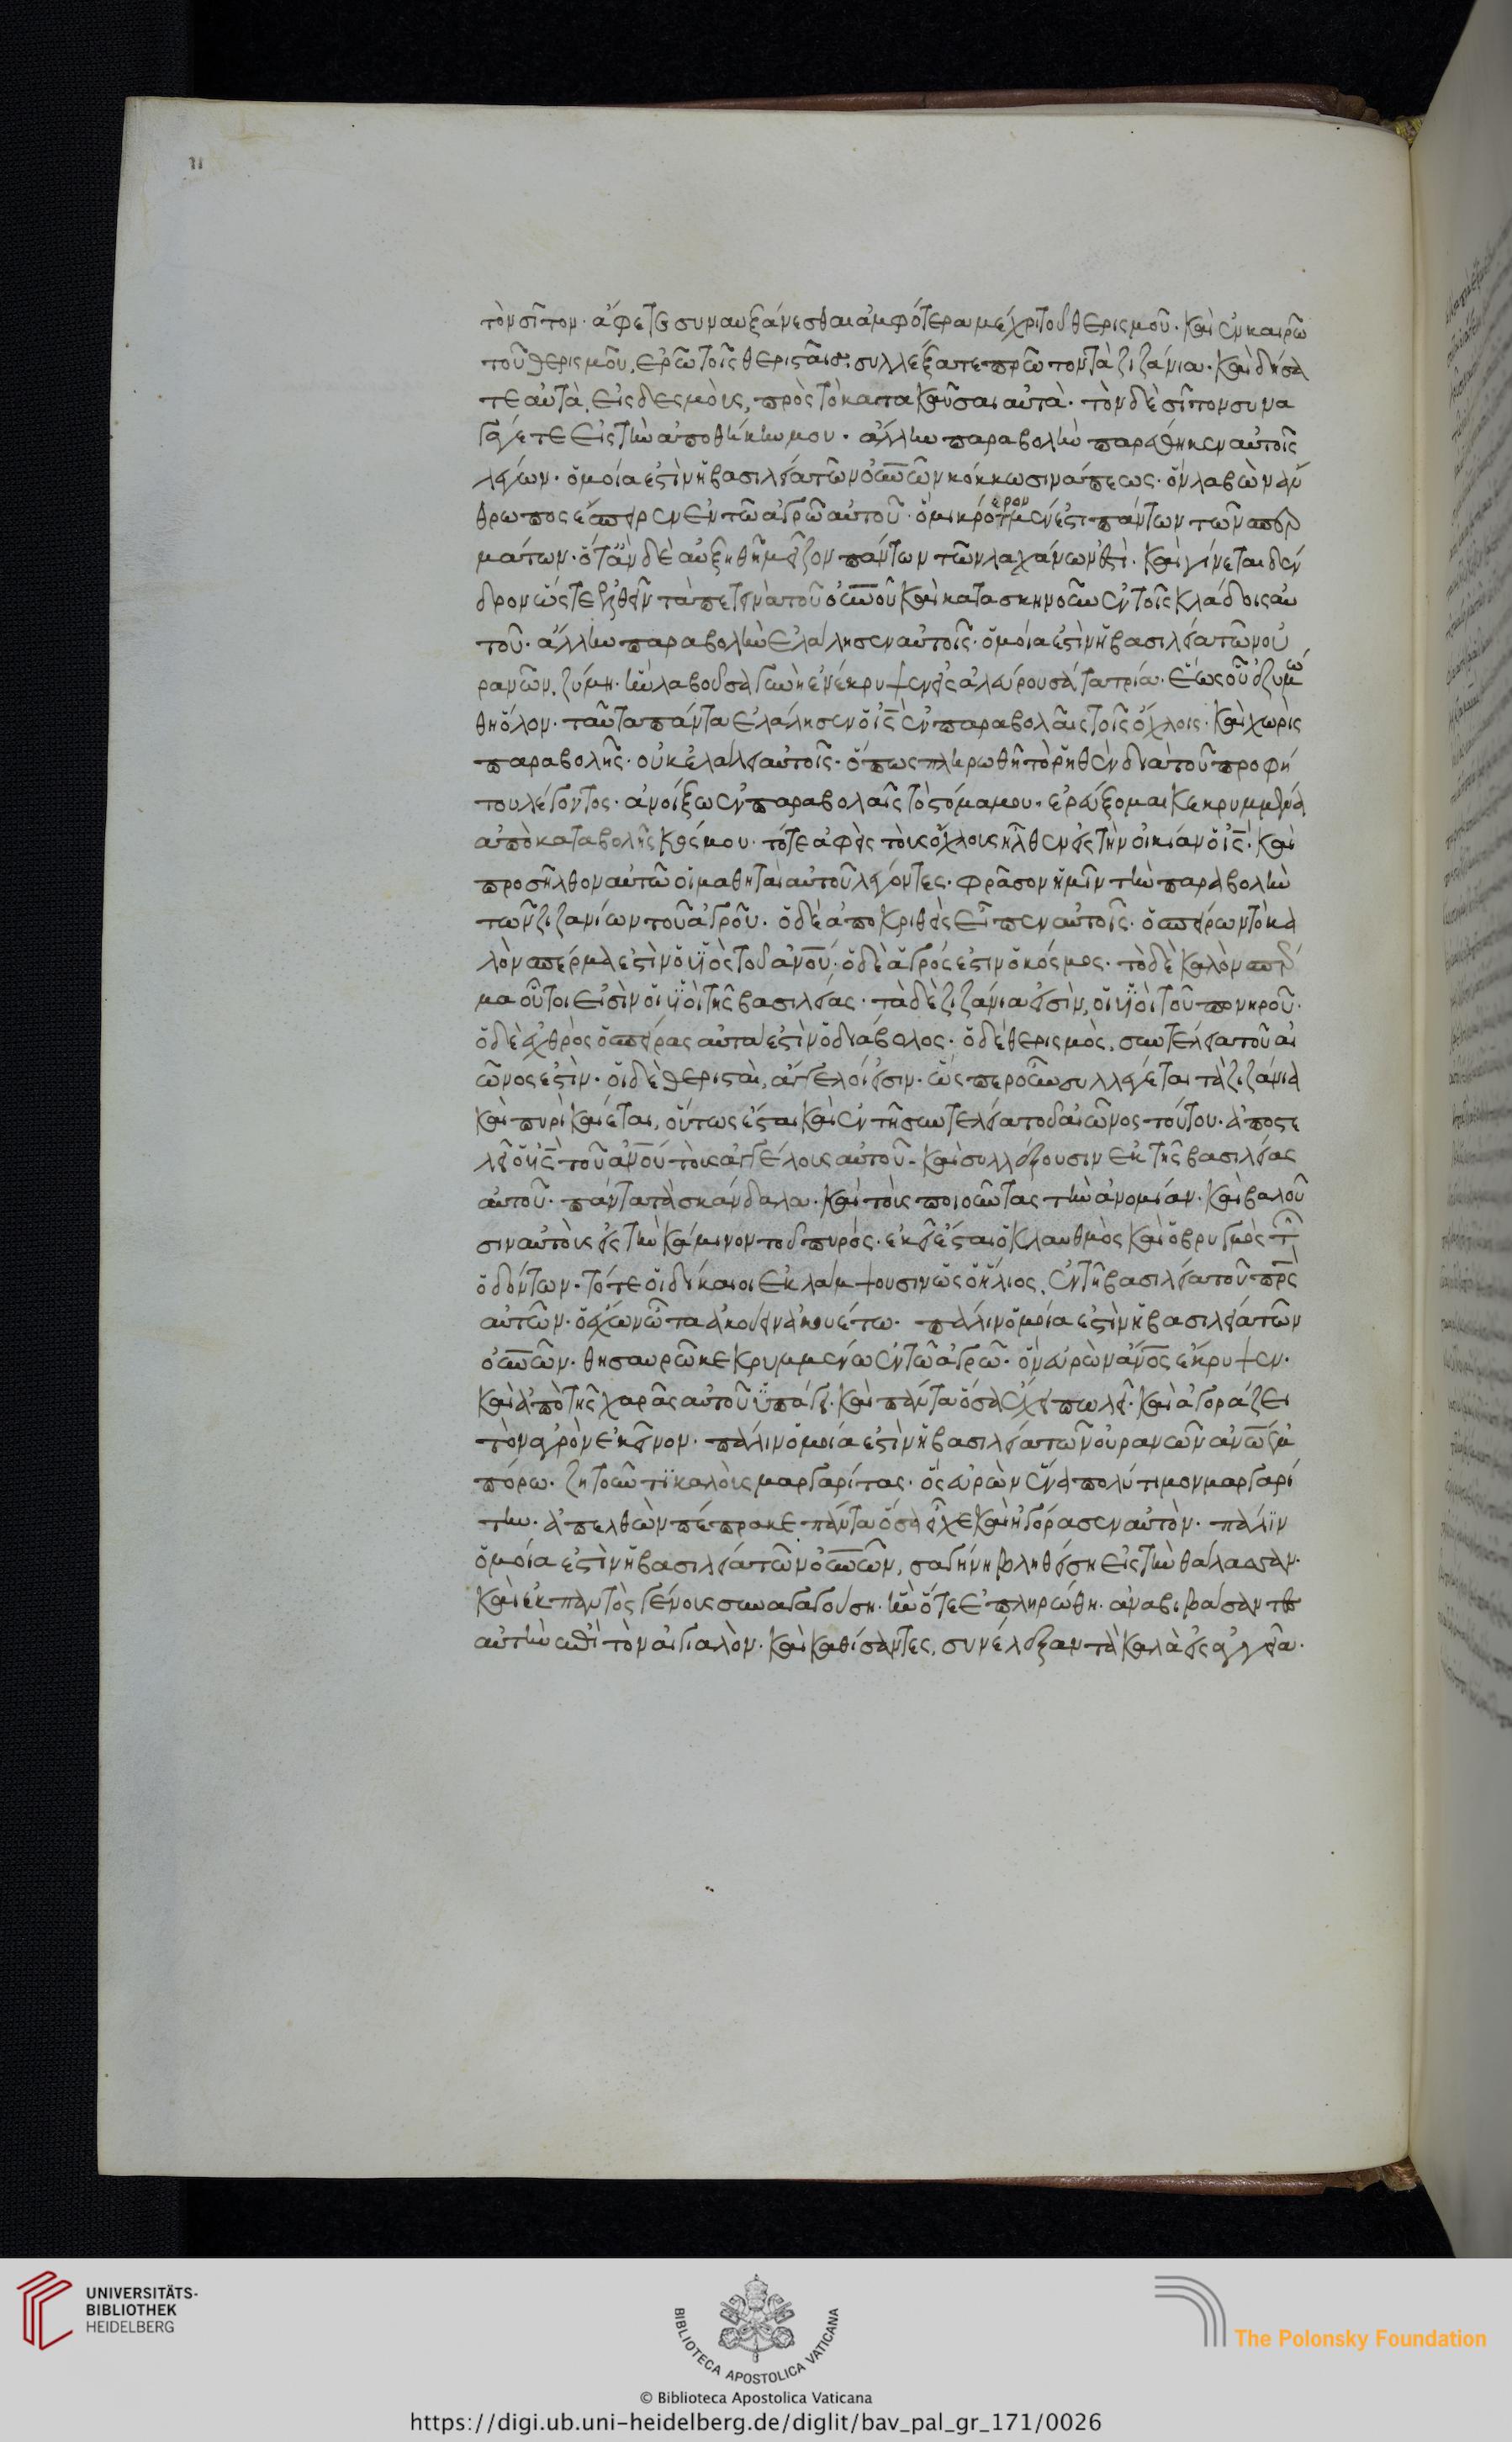 11
τὸν σῖτον· ἄφετε συναυξάνεσθαι ἀμφότερα μέχρι τοῦ θερισμοῦ· καὶ ἐν καιρῶ
τοῦ θερισμοῦ, ἐρῶ τοῖς θερισταῖς· συλλέξατε πρῶτον τὰ ζιζάνια· καὶ δήσα
τε αὐτὰ εἰς δεσμοὺς, πρὸς τὸ κατακαῦσαι αὐτὰ· τὸν δὲ σῖτον συνα
γάγετε εἰς τὴν ἀποθήκην μου· ἄλλην παραβολὴν παρέθηκεν αὐτοῖς
λέγων· ὁμοία ἐστὶν ἡ βασιλεία τῶν οὐνῶν κόκκω σινάπεως· ὃν λαβὼν ἄν
θρωπος ἔσπειρεν ἐν τῶ ἀγρῶ αὐτοῦ· ὃ μικρότερον μέν ἐστι πάντων τῶν σπερ
μάτων· ὅταν δὲ αὐξηθῆ μεῖζον πάντων τῶν λαχάνων ἐστὶ· καὶ γίνεται δέν
δρον ὥστε ἐλθεῖν τὰ πετεινὰ τοῦ οὐνοῦ καὶ κατασκηνοῦν ἐν τοῖς κλάδοις αὐ
τοῦ· ἄλλην παραβολὴν ἐλάλησεν αὐτοῖς· ὁμοία ἐστὶν ἡ βασιλεία τῶν οὐ
ρανῶν, ζύμη· ἣν λαβοῦσα γυνὴ ἐνέκρυψεν εἰς ἀλεύρου σάτα τρία· ἕως οὗ ἐζυμώ
θη ὅλον· ταῦτα πάντα ἐλάλησεν ὁ ἰς ἐν παραβολαῖς τοῖς ὄχλοις· καὶ χωρὶς
παραβολῆς· οὐκ ἐλάλει αὐτοῖς· ὅπως πληρωθῆ τὸ ῥηθὲν διὰ τοῦ προφή
του λέγοντος· ἀνοίξω ἐν παραβολαῖς τὸ στόμα μου· ἐρεύξομαι κεκρυμμένα
ἀπὸ καταβολῆς κόσμου· τότε ἀφεὶς τοὺς ὄχλους ἦλθεν εἰς τὴν οἰκίαν ὁ ἰς· καὶ
προσῆλθον αὐτῶ οἱ μαθηταὶ αὐτοῦ λέγοντες· φράσον ἡμῖν τὴν παραβολὴν
τῶν ζιζανίων τοῦ ἀγροῦ· ὁ δὲ ἀποκριθεὶς εἶπεν αὐτοῖς· ὁ σπείρων τὸ κα
λὸν σπέρμα ἐστὶν ὁ υἱὸς τοῦ ἀνου· ὁ δὲ ἀγρός ἐστιν ὁ κόσμος· τὸ δὲ καλὸν σπέρ
μα οὗτοι εἰσὶν οἱ υἱοὶ τῆς βασιλείας· τὰ δὲ ζιζάνια εἰσὶν, οἱ υἱοὶ τοῦ πονηροῦ·
ὁ δὲ ἐχθρὸς ὁ σπείρας αὐτά ἐστὶν ὁ διάβολος· ὁ δὲ θερισμὸς, συντέλεια τοῦ αἰ
ῶνος ἐστὶν· οἱ δὲ θερισταὶ, ἄγγελοί εἰσιν· ὥσπερ οὖν συλλέγεται τὰ ζιζάνια
καὶ πυρὶ καίεται, οὕτως ἔσται καὶ ἐν τῆ συντελεία τοῦ αἰῶνος τούτου· ἀποστε
λεῖ ὁ υἱς τοῦ ἀνου τοὺς ἀγγέλους αὐτοῦ· καὶ συλλέξουσιν ἐκ τῆς βασιλείας
αὐτοῦ· πάντα τὰ σκάνδαλα· καὶ τοὺς ποιοῦντας τὴν ἀνομίαν· καὶ βαλοῦ
σιν αὐτοὺς εἰς τὴν κάμινον τοῦ πυρός· ἐκεῖ ἔσται ὁ κλαυθμὸς καὶ ὁ βρυγμὸς τῶν
ὀδόντων· τότε οἱ δίκαιοι ἐκλάμψουσιν ὡς ὁ ἥλιος, ἐν τῆ βασιλεία τοῦ πρς
αὐτῶν· ὁ ἔχων ὦτα ἀκούειν ἀκουέτω· πάλιν ὁμοία ἐστὶν ἡ βασιλεία τῶν
οὐνῶν· θησαυρῶ κεκρυμμένω ἐν τῶ ἀγρῶ· ὃν εὑρὼν ἀνος ἔκρυψεν·
καὶ ἀπὸ τῆς χαρᾶς αὐτοῦ ὑπάγει· καὶ πάντα ὅσα ἔχει πωλεῖ· καὶ ἀγοράζει
τὸν ἀγρὸν ἐκεῖνον· πάλιν ὁμοία ἐστὶν ἡ βασιλεία τῶν οὐρανῶν ἀνω ἐμ
πόρω· ζητοῦντι καλοὺς μαργαρίτας· ὃς εὑρὼν ἕνα πολύτιμον μαργαρί
την· ἀπελθὼν πέπρακε πάντα ὅσα εἶχε καὶ ἠγόρασεν αὐτὸν· πάλιν
ὁμοία ἐστὶν ἡ βασιλεία τῶν οὐνῶν, σαγήνη βληθείση εἰς τὴν θάλασσαν·
καὶ ἐκ παντὸς γένους συναγαγούση· ἣν ὅτε ἐπληρώθη· ἀναβιβάσαντες
αὐτὴν ἐπὶ τὸν αἰγιαλὸν· καὶ καθίσαντες, συνέλεξαν τὰ καλὰ εἰς ἀγγεῖα·
UNIVERSITÄTS-
BIBLIOTHEK
HEIDELBERG
BIBLIOTECA APOSTOLICA VATICANA
The Polonsky Foundation
© Biblioteca Apostolica Vaticana
https://digi.ub.uni-heidelberg.de/diglit/bav_pal_gr_171/0026